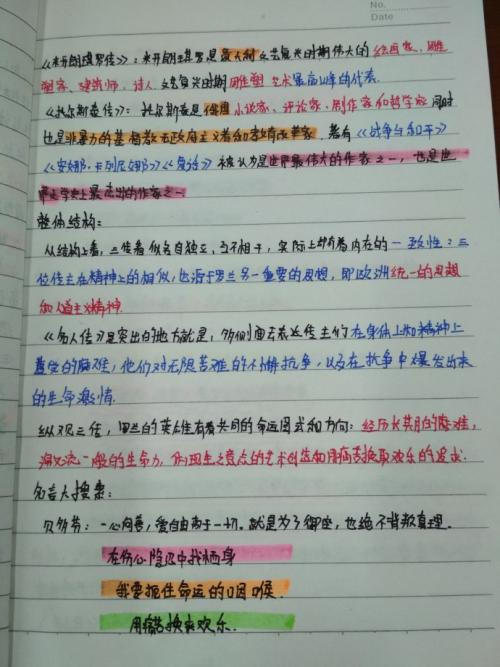 No.
Date
《米开朗琪罗传》：米开朗琪罗是意大利文艺复兴时期伟大的绘画家、雕
塑家、建筑师、诗人 文艺复兴时期雕塑艺术最高峰的代表.
《托尔斯泰传》：托尔斯泰是俄国小说家、评论家、剧作家和哲学家 同时
也是非暴力的基督教无政府主义者和教育改革家. 著有《战争与和平》
《安娜·卡列尼娜》《复活》 被认为是世界最伟大的作家之一，也是世
界文学史上最杰出的作家之一
整体结构：
从结构上看，三传看似各自独立，互不相干，实际上却有着内在的一致性：三
位传主在精神上的相似，也源于罗兰另一重要的思想，即欧洲统一的思想
和人道主义精神.
《名人传》最突出的地方就是，多侧面去表达传主们在身体上和精神上
遭受的磨难，他们对无限苦难的不懈抗争，以及在抗争中爆发出来
的生命激情.
纵观三传，罗兰的英雄有着共同的命运图式和方向：经历长其月的磨难，
激流一般的生命力，体现生之意志的艺术创造和用痛苦换取欢乐的
名言大搜索：
贝多芬：一心向善，爱自由高于一切。就是为了御座，也绝不背叛真理.
在伤心隐退中找栖身
我要扼住命运的咽喉.
用痛苦换来欢乐.